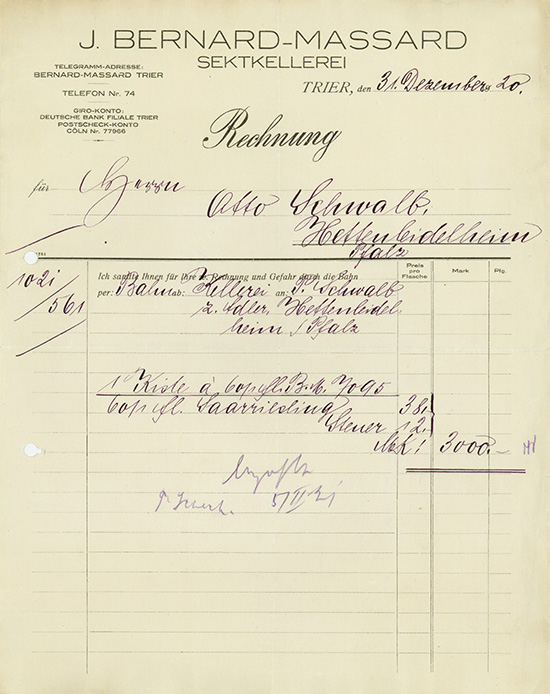 J. BERNARD-MASSARD
SEKTKELLEREI
TELEGRAMM-ADRESSE:
BERNARD-MASSARD TRIER
TELEFON Nr. 74
GIRO-KONTO:
DEUTSCHE BANK FILIALE TRIER
POSTSCHECK-KONTO
CÖLN Nr. 77966
TRIER, den 31. Dezember 1920.
Rechnung
für Herrn
Otto Schwalb,
Hettenleidelheim
Pfalz
1021/561
Ich sandte Ihnen für Ihre w. Rechnung und Gefahr durch die Bahn
per: Bahn ab: Kellerei an: P. Schwalb
z. Adler, Hettenleidel
heim / Pfalz
Preis pro Flasche Mark Pfg.
1 Kiste à 60/1 fl. B.M. 7095
60/1 fl. Saarriesling 38.
Steuer 12.
Mk! 3000.-
5/II 21